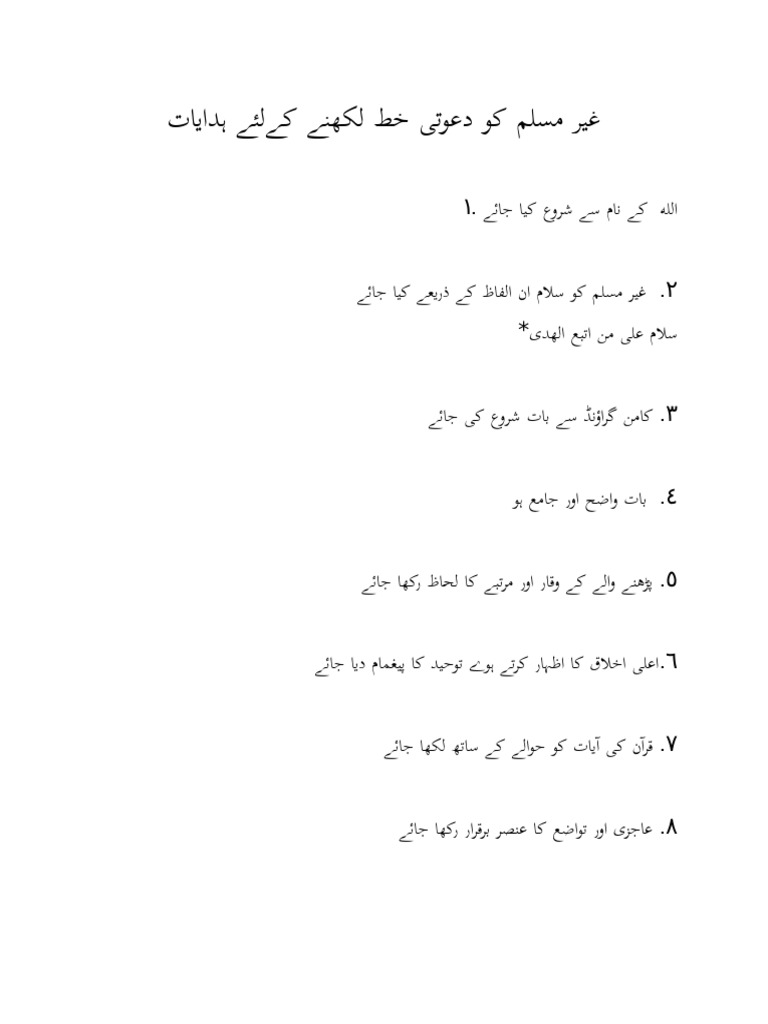 غیر مسلم کو دعوتی خط لکھنے کےلئے ہدایات
الله کے نام سے شروع کیا جائے .١
٢. غیر مسلم کو سلام ان الفاظ کے ذریعے کیا جائے
سلام علی من اتبع الھدی*
٣. کامن گراؤنڈ سے بات شروع کی جائے
٤. بات واضح اور جامع ہو
٥. پڑھنے والے کے وقار اور مرتبے کا لحاظ رکھا جائے
٦.اعلی اخلاق کا اظہار کرتے ہوے توحید کا پیغمام دیا جائے
٧. قرآن کی آیات کو حوالے کے ساتھ لکھا جائے
٨. عاجزی اور تواضع کا عنصر برقرار رکھا جائے